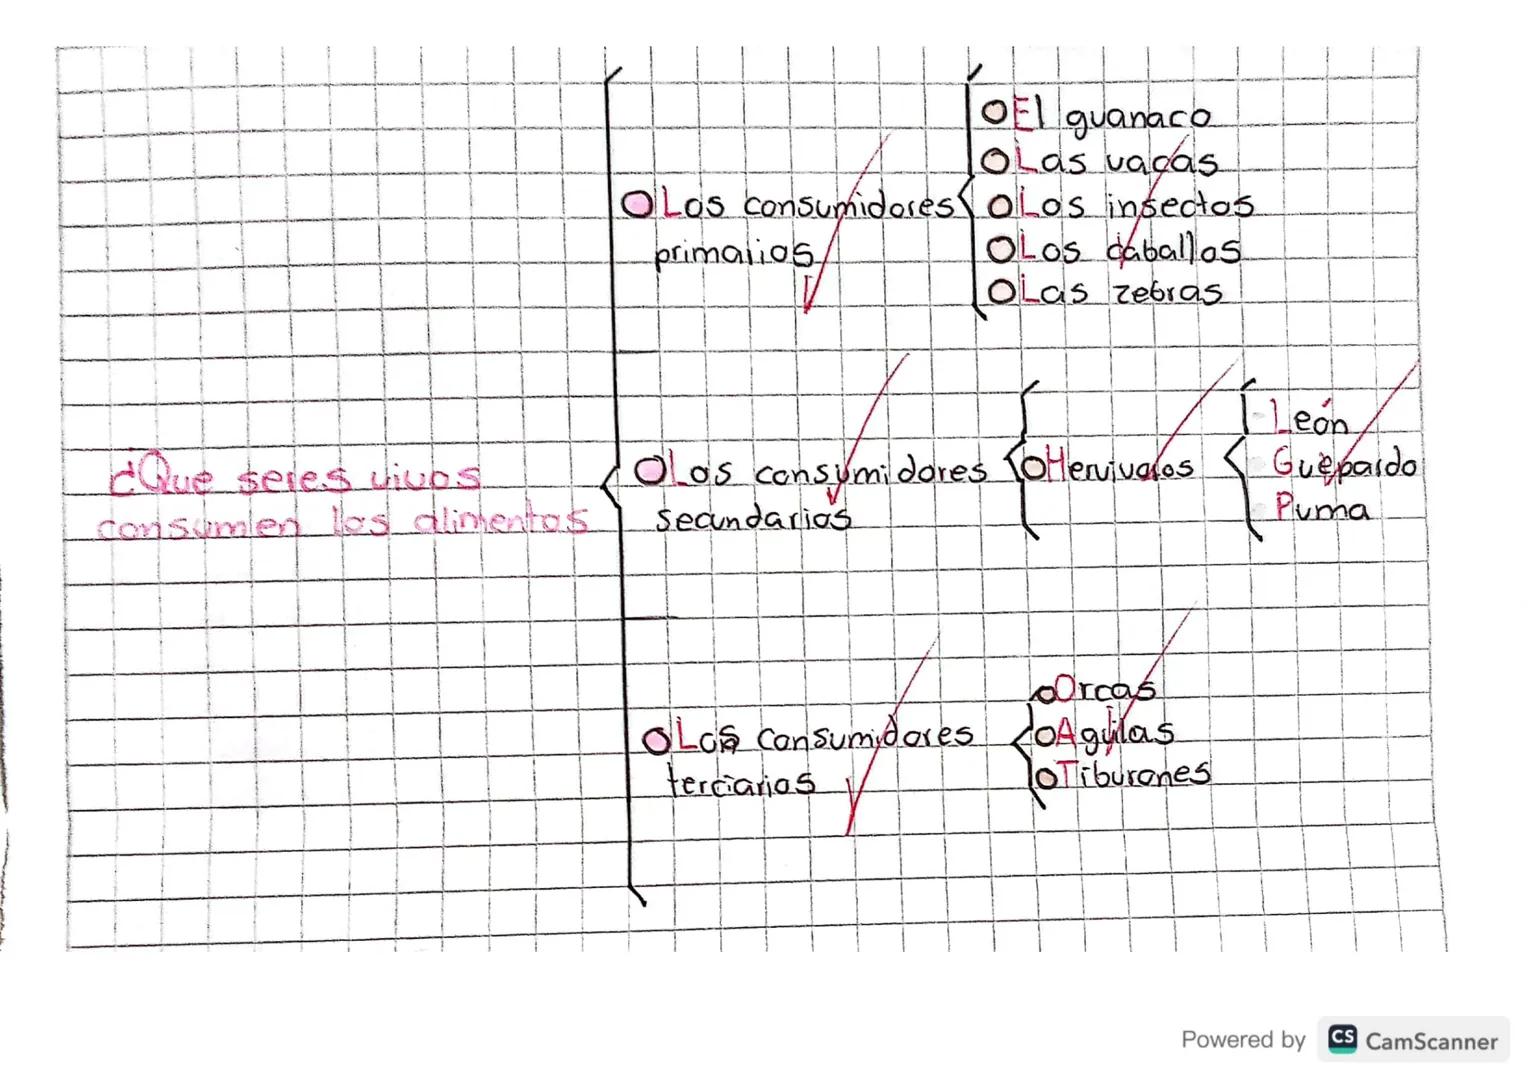 El guanaco
Las vacas
Los consumidores
Los insectos
primarios
Los caballos
Las zebras
León
¿Que seres vivos
Los consumidores
Hervivoros
Guepardo
consumen los alimentos
secundarios
Puma
Orcas
Los consumidores
Agilas
terciarios
Tiburones
Powered by CS CamScanner